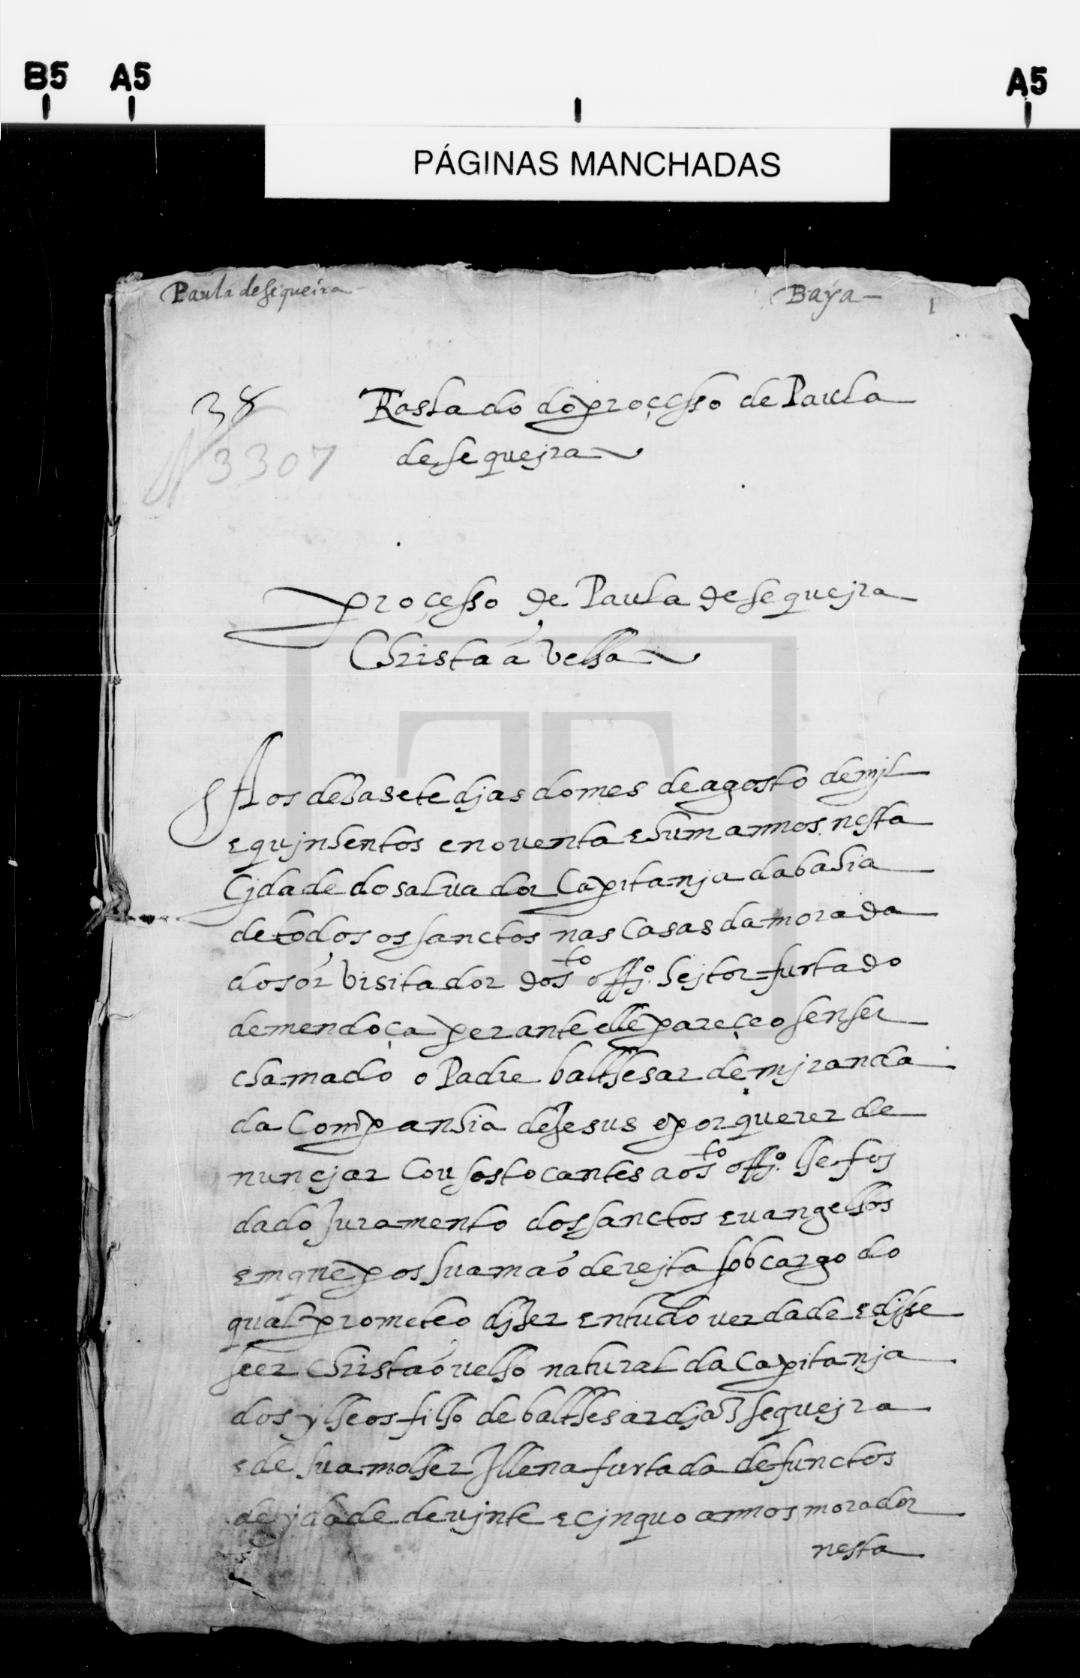 B5 A5 A5
PÁGINAS MANCHADAS
Paula de Sequeira Baÿa 1
38 Traslado do processo de Paula
de sequejra
N 3307
processo de Paula de sequejra
Christaã velha
Aos dezasete djas do mes de agosto de mjl
e qujnhentos e noventa e hum annos nesta
Cjdade do salvador Capitanja da bahia
de todos os sanctos nas casas da morada
do sõr visitador do sto offjo. hejtor furtado
de mendoça perante elle pareçeo sen ser
chamado o Padre balthesar de mjranda
da Companhia de Jesus e por querer de
nuncjar cousos tocantes ao sto offjo. lhe foj
dado Juramento dos sanctos evangelhos
em que pos sua maõ derejta sob cargo do
qual prometeo djzer en tudo verdade e djsse
seer christaõ velho natural da Capitanja
dos ylheos filho de balthesar djaz sequejra
e de sua molher Illena furtada defunctos
de jdade de vjnte e cjnquo annos morador
nesta